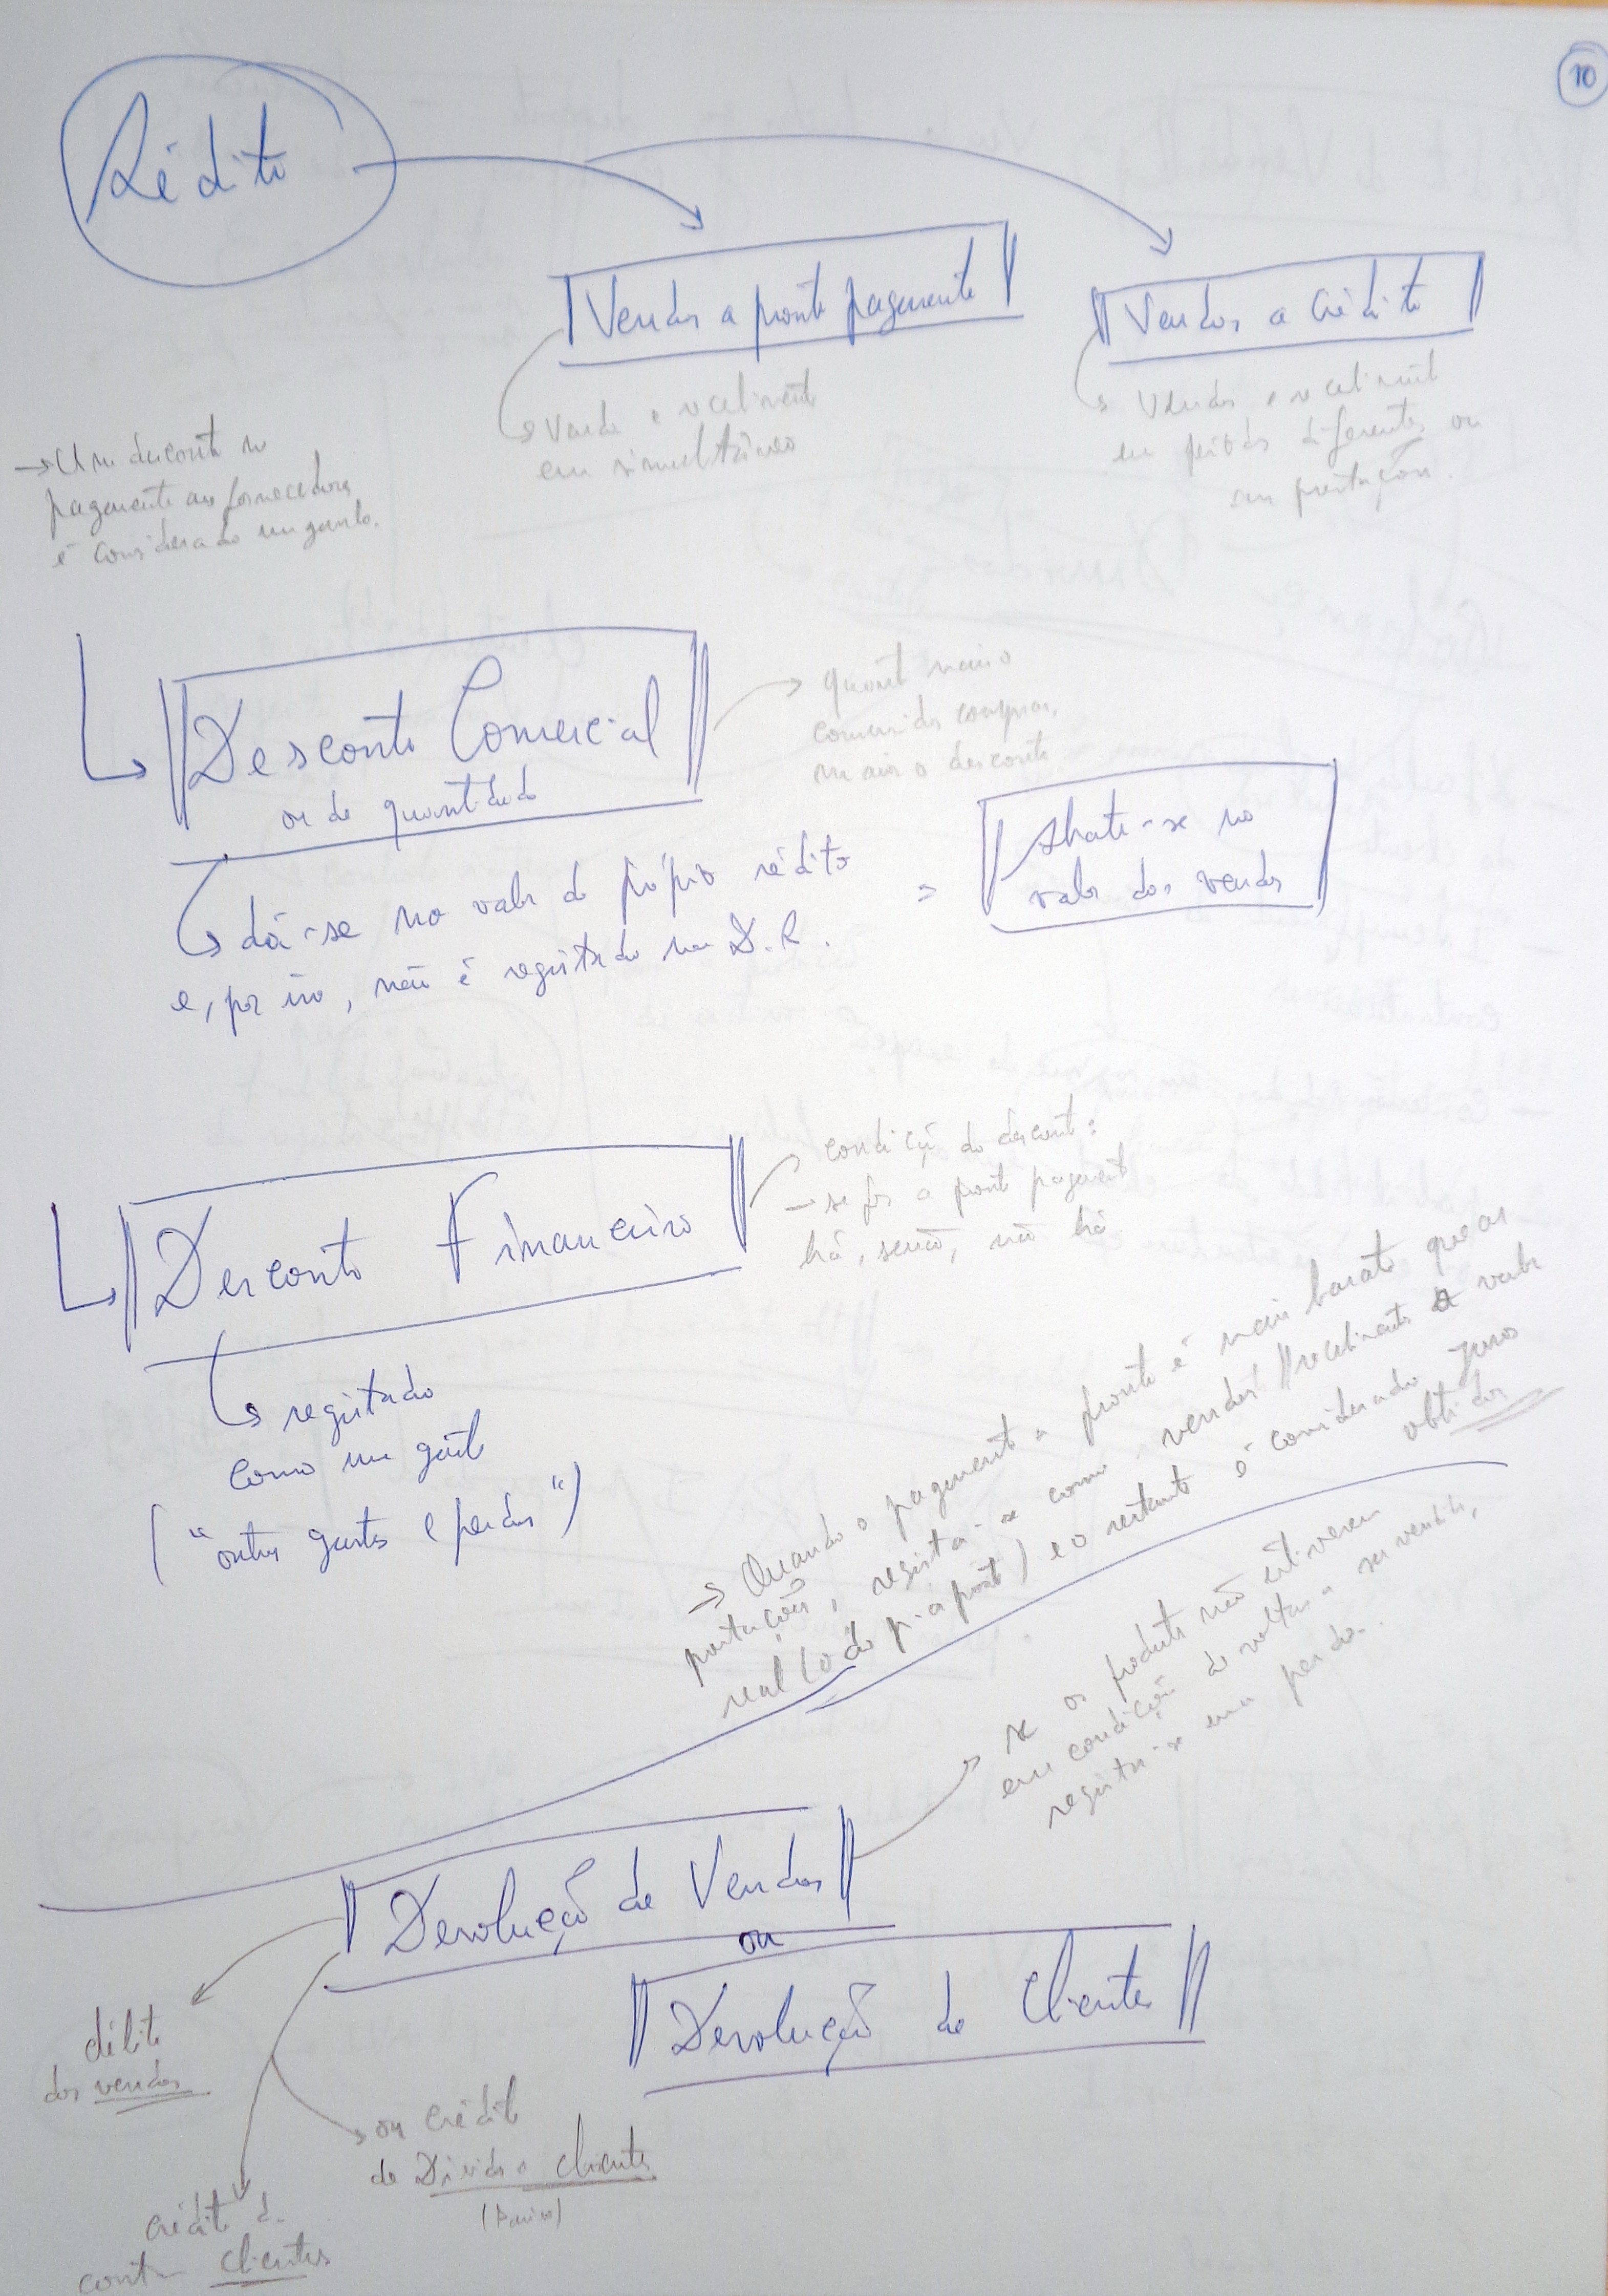 10
Rédito
Vendas a pronto pagamento
Vendas a Crédito
↳ Venda e recebimento
em simultâneo
↳ Vendas e recebimento
em períodos diferentes ou
em prestações.
→ Um desconto no
pagamento aos fornecedores
é considerado um ganho.
Desconto Comercial
ou de quantidade
→ Quanto maior
comerciais compras,
maior o desconto
↳ dá-se no valor do próprio rédito
e, por isso, não é registado na D.R.
= Abate-se no
valor das vendas
Desconto Financeiro
condição do desconto:
→ se for a pronto pagamento
há, senão, não há
↳ registado
como um gasto
("outros gastos e perdas")
→ Quando o pagamento a pronto é mais barato que as
prestações, regista-se como vendas // recebimento o valor
real (o do p. a pronto) e o restante é considerado juros
obtidos
Devolução de Vendas
→ se os produtos não estiverem
em condições de voltar a ser vendidos,
regista-se uma perda.
ou
Devolução de Clientes
débito
das vendas
→ ou crédito
de Dívida a clientes
crédito da
conta clientes